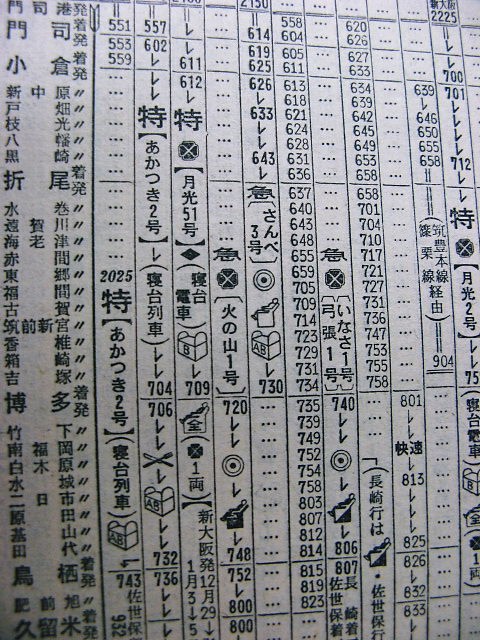 門司港発
門司着発
小倉着発
新中原〃
戸畑〃
枝光〃
八幡〃
黒崎〃
折尾着発
水巻〃
遠賀川〃
海老津〃
赤間〃
東郷〃
福間〃
古賀〃
筑前新宮〃
香椎〃
箱崎〃
吉塚〃
博多着発
竹下〃
南福岡〃
白木原〃
水城〃
二日市〃
原田〃
基山〃
田代〃
鳥栖着発
肥前旭〃
久留米着発
551
553
559
2025
特
【あかつき2号】
(寝台列車)
743
佐世保着
932
557
602
特
【あかつき2号】
(寝台列車)
704
706
732
736
佐世保行
611
612
特
【月光51号】
(寝台電車)
B
709
全
1両
【新大阪発12月29→
1月3→5
2150
614
619
625
626
633
643
急
〔さんべ3号〕
AB
730
急
〔火の山1号〕
720
748
752
800
800
558
604
605
611
613
618
621
624
628
631
636
637
640
645
648
655
659
705
709
714
723
729
731
734
735
739
749
752
754
758
803
807
812
814
815
819
823
急
〔いなさ1号
弓張1号〕
740
806
807
長崎着
佐世保着
620
626
627
633
634
639
642
645
649
653
658
658
701
704
710
717
721
727
731
736
747
753
755
758
(長崎行は
・佐世保行
639
646
650
655
658
(筑豊本線
篠栗線
経由)
801
快速
813
825
826
832
833
904
新大阪
2225
700
701
712
特
【月光2号】
(寝台電車)
B
全
1両